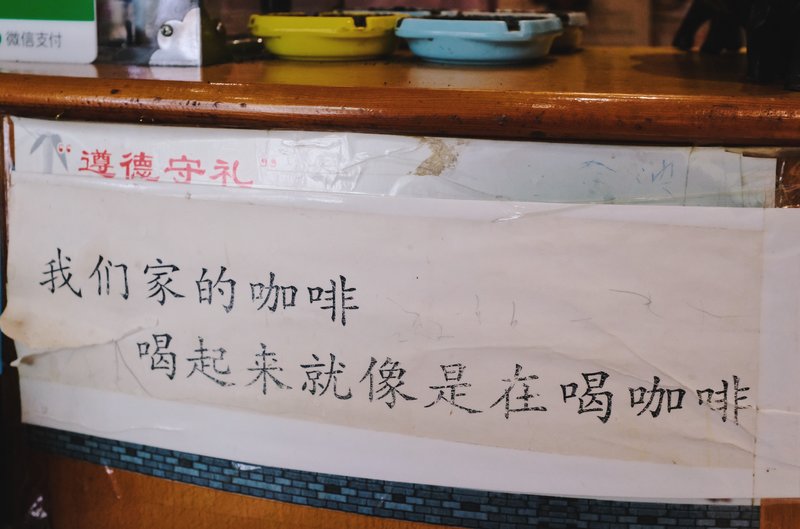 微信支付
“遵德守礼”
我们家的咖啡
喝起来就像是在喝咖啡